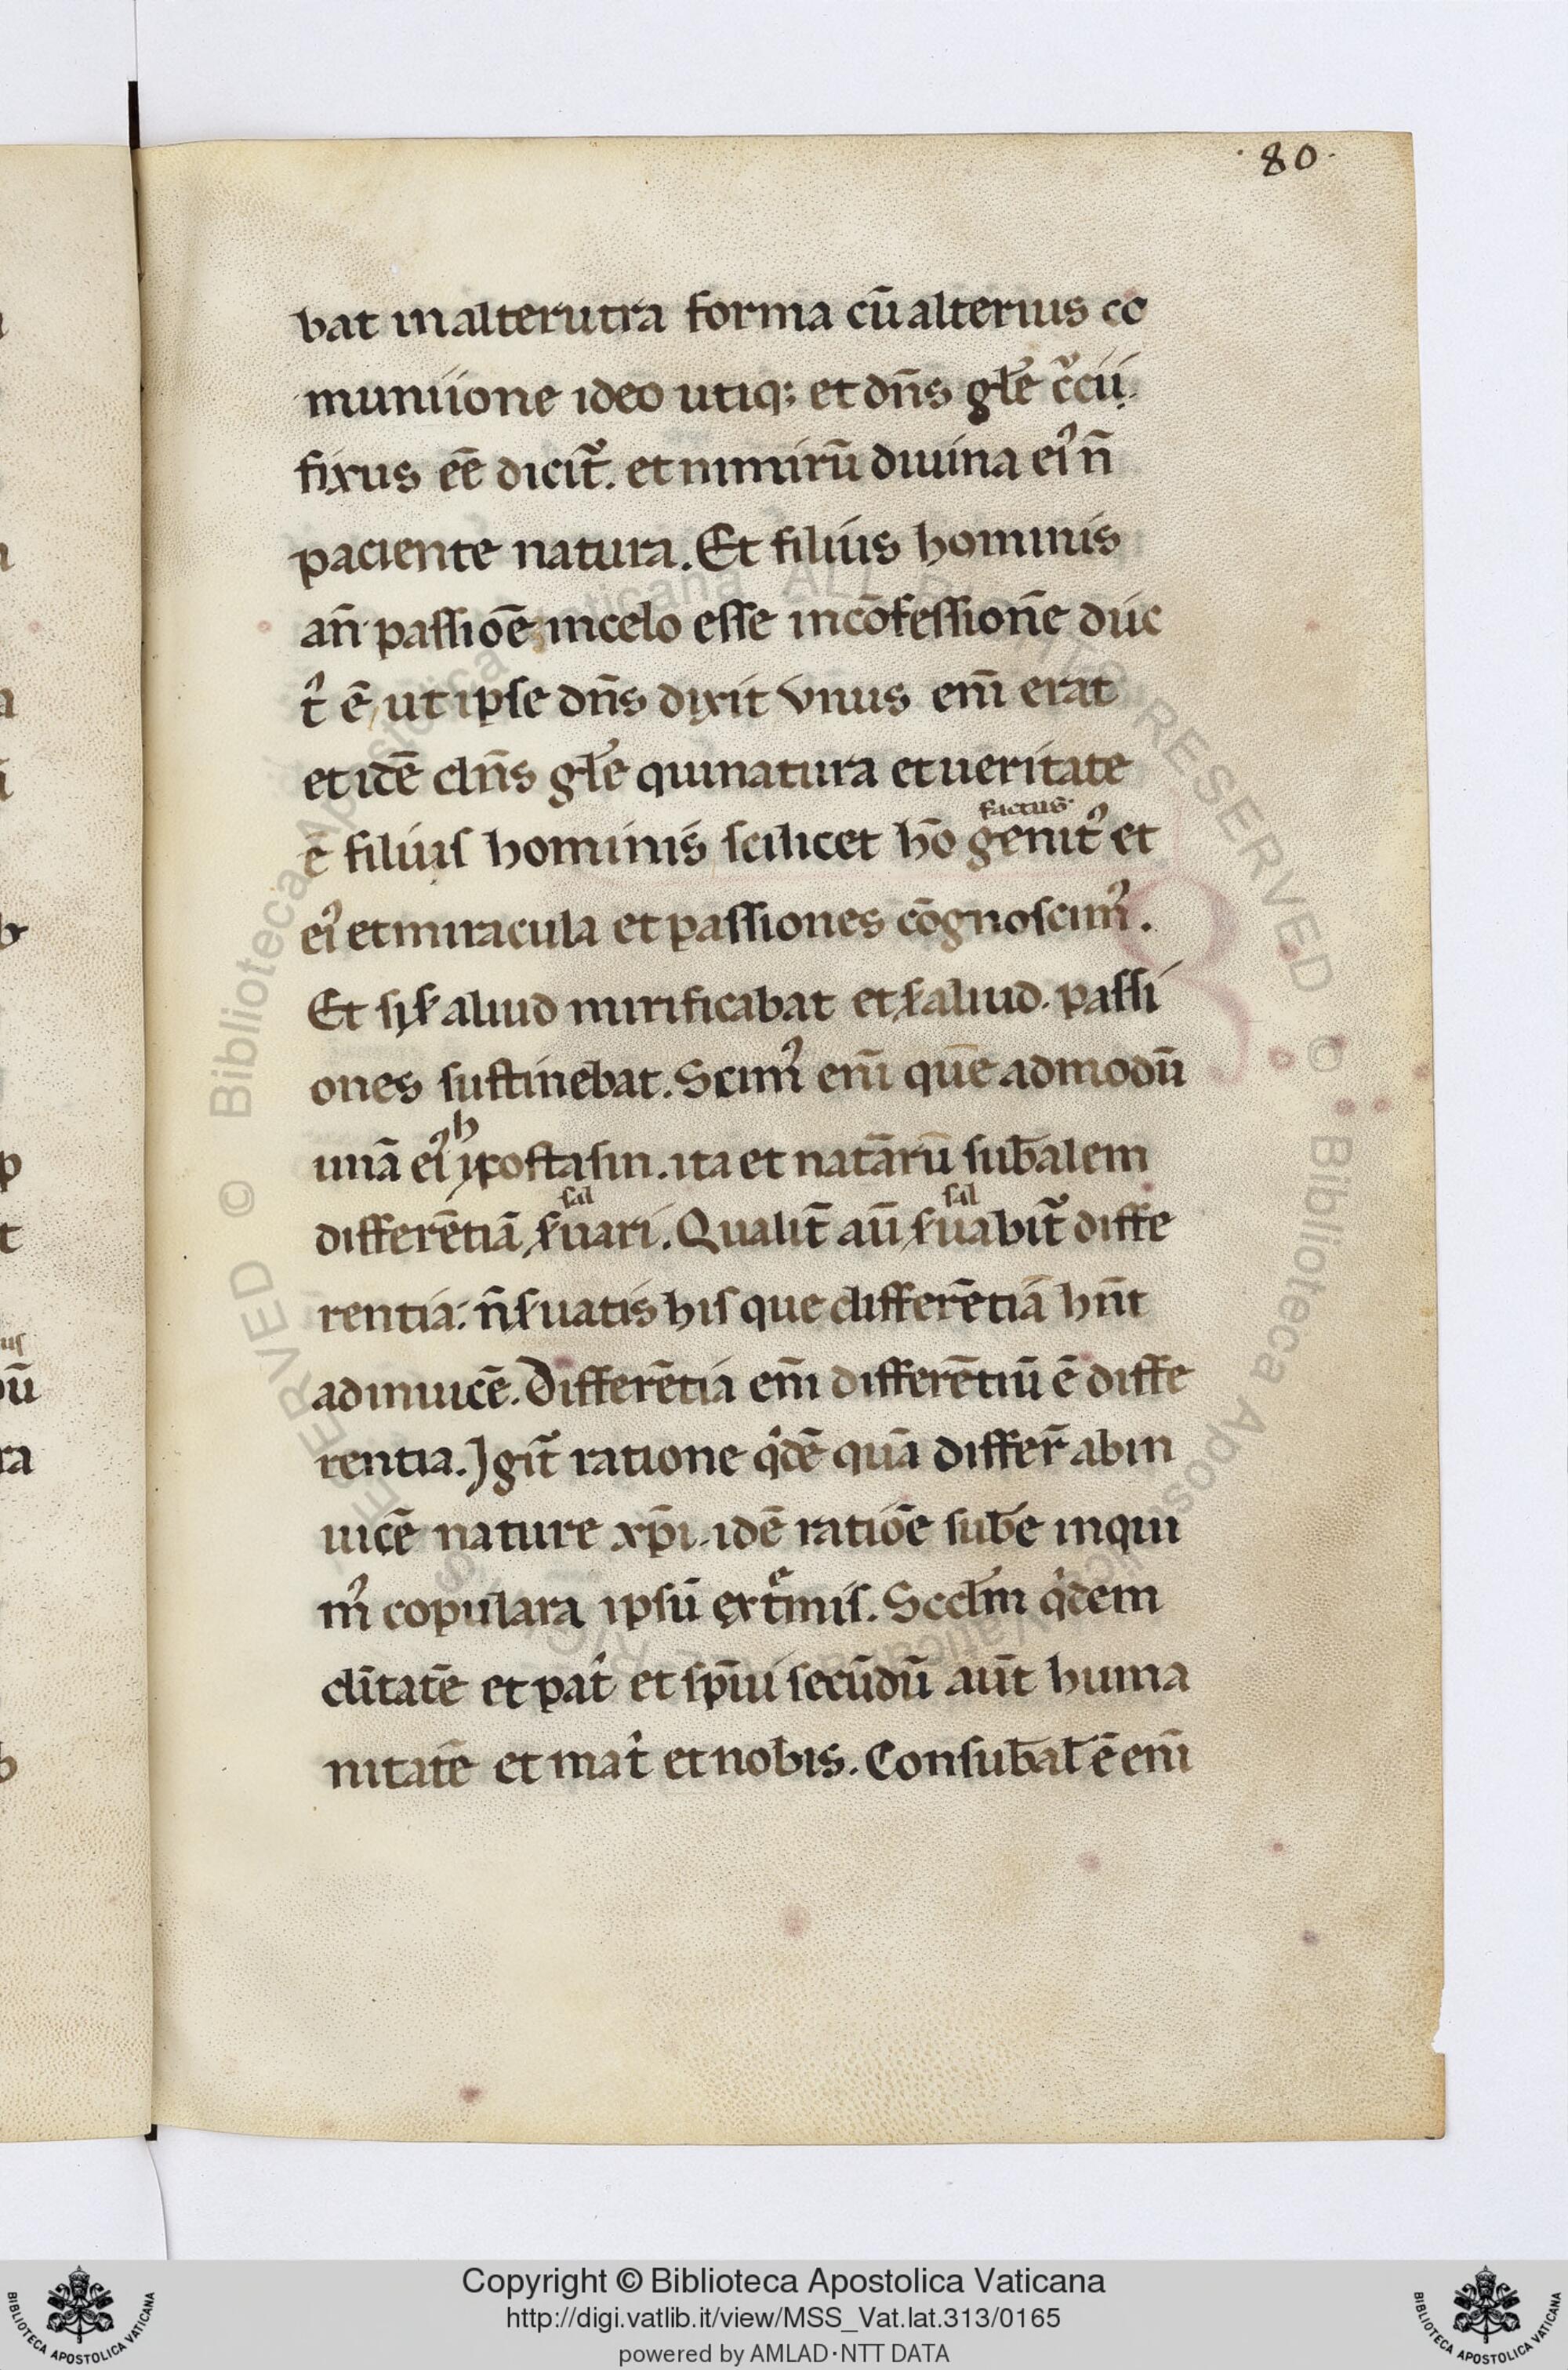 ·80·
bat in alterutra forma cū alterius co
muniione ideo utiq; et dn̄s gl̄e c̓cii
fixus eē dicit᷑. et nimirū diuina ei᷒ n̄
paciente natura. Et filius hominis
an̄ passiōe in celo esse in cōfessiōne duc
t᷒ ē ut ipse dn̄s dixit vnus eni̅ erat
et idē dn̄s gl̄e qui natura et ueritate
ē filius hominis scilicet hō factus· genit᷒ et
ei᷒ et miracula et passiones cōgnoscim᷒.
Et si ẜ aliud mirificabat et ẜ aliud passi
ones sustinebat. Scim᷒ eni̅ quē admodū
unā ei᷒ hypostasin. ita et natārū sub̄alem
differētiā ẜuari. sal Qualit̄ aū ẜuabit᷑ sal diffe
rentia: n̄ ẜuatis his que differētiā hn̄t
ad inuicē. Differētia eni̅ differētiū ē diffe
rentia. Igit᷑ ratione qͥdē quā differ̄ ab in
uicē nature xp̄i. idē ratiōe sub̄e inqui
m᷒ copulara ipsū ext̄mis. Scd̄m qͥdem
dītatē et pat̓ et sp̄iu secūdū aūt huma
nitatē et mat̓ et nobis. Consub̄al̄ ē eni̅
Copyright © Biblioteca Apostolica Vaticana
http://digi.vatlib.it/view/MSS_Vat.lat.313/0165
powered by AMLAD·NTT DATA